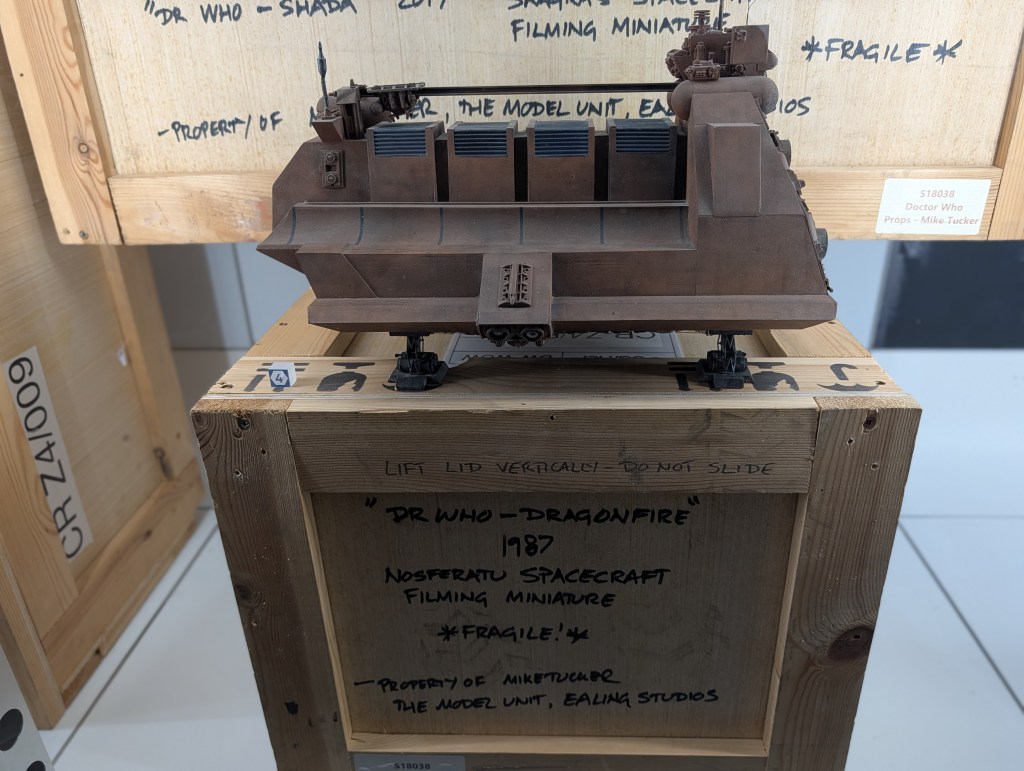 "DR WHO - SHADA 2017
FILMING MINIATURE
*FRAGILE*
-PROPERTY OF
, THE MODEL UNIT, EALING STUDIOS
S18038
Doctor Who
Props - Mike Tucker
CR Z4/009
4
LIFT LID VERTICALLY - DO NOT SLIDE
"DR WHO - DRAGONFIRE"
1987
NOSFERATU SPACECRAFT
FILMING MINIATURE
*FRAGILE!*
- PROPERTY OF MIKE TUCKER
THE MODEL UNIT, EALING STUDIOS
S18038